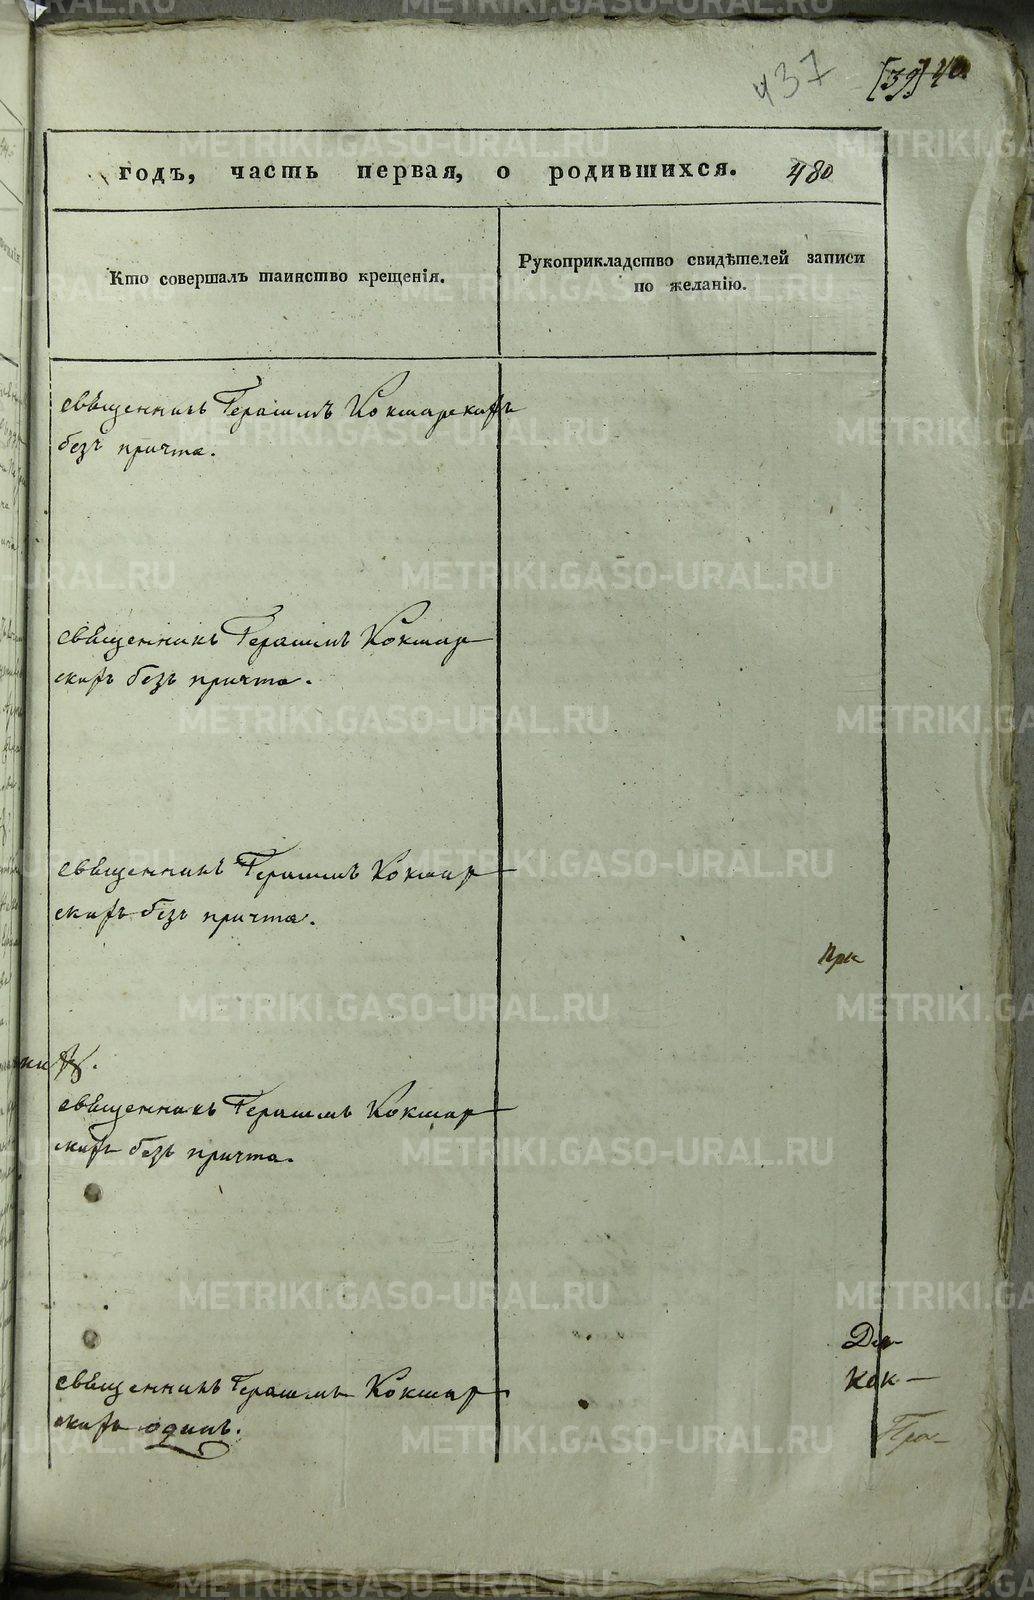 437 [39] 40
годъ, часть первая, о родившихся. 480
Кто совершалъ таинство крещенія.
Рукоприкладство свидѣтелей записи
по желанію.
священникъ Герасимъ Кокшарскихъ
безъ причта.
священникъ Герасимъ Кокшар
скихъ безъ причта.
священникъ Герасимъ Кокшар
скихъ безъ причта.
При
священникъ Герасимъ Кокшар
скихъ безъ причта.
Дья
Кок
священникъ Герасимъ Кокшар
скихъ одинъ.
METRIKI.GASO-URAL.RU